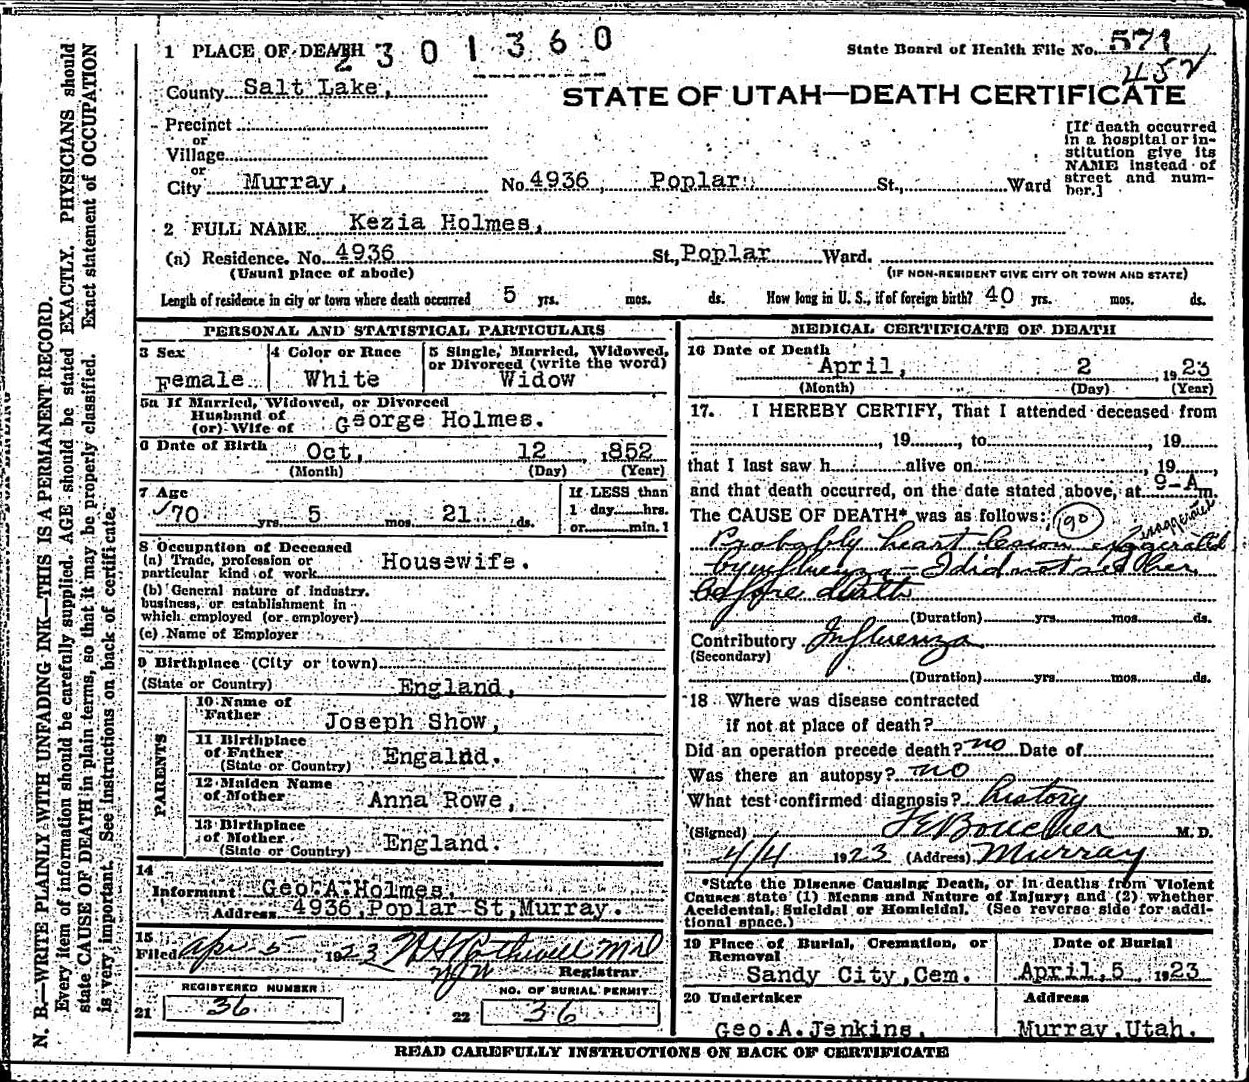 1 PLACE OF DEATH
2 3 0 1 3 6 0
State Board of Health File No. 571
452
County Salt Lake,
STATE OF UTAH—DEATH CERTIFICATE
Precinct
or
Village
or
City Murray, No. 4936, Poplar. St., Ward
[If death occurred in a hospital or in-
stitution give its
NAME instead of
street and num-
ber.]
2 FULL NAME Kezia Holmes,
(a) Residence. No. 4936 St., Poplar Ward.
(Usual place of abode) (IF NON-RESIDENT GIVE CITY OR TOWN AND STATE)
Length of residence in city or town where death occurred 5 yrs. mos. ds. How long in U. S., if of foreign birth? 40 yrs. mos. ds.
PERSONAL AND STATISTICAL PARTICULARS
3 Sex
Female
4 Color or Race
White
5 Single, Married, Widowed,
or Divorced (write the word)
Widow
5a If Married, Widowed, or Divorced
Husband of
(or) Wife of George Holmes.
6 Date of Birth Oct, 12 ,1852
(Month) (Day) (Year)
7 Age
70 yrs. 5 mos. 21 ds.
If LESS than
1 day hrs.
or min. 1
8 Occupation of Deceased
(a) Trade, profession or
particular kind of work Housewife.
(b) General nature of industry,
business, or establishment in
which employed (or employer)
(c) Name of Employer
9 Birthplace (City or town)
(State or Country) England,
PARENTS
10 Name of
Father Joseph Show,
11 Birthplace
of Father
(State or Country) Engalnd.
12 Maiden Name
of Mother Anna Rowe,
13 Birthplace
of Mother
(State or Country) England.
14
Informant Geo.A.Holmes.
Address 4936,Poplar St,Murray.
15
Filed Apr 5, 1923
Registrar
REGISTERED NUMBER
21 36
NO. OF BURIAL PERMIT
22 36
MEDICAL CERTIFICATE OF DEATH
16 Date of Death
April, 2 1923
(Month) (Day) (Year)
17. I HEREBY CERTIFY, That I attended deceased from
, 19 , to , 19
that I last saw h alive on , 19 ,
and that death occurred, on the date stated above, at 9-A m.
The CAUSE OF DEATH* was as follows: 90 exaggerated
Probably heart lesion exaggerated
by influenza - I did not see her
before death
(Duration) yrs. mos. ds.
Contributory Influenza
(Secondary)
(Duration) yrs. mos. ds.
18 Where was disease contracted
if not at place of death?
Did an operation precede death? no Date of
Was there an autopsy? no
What test confirmed diagnosis? history
(Signed) M. D.
4/4 1923 (Address) Murray
*State the Disease Causing Death, or in deaths from Violent
Causes state (1) Means and Nature of Injury; and (2) whether
Accidental, Suicidal or Homicidal. (See reverse side for addi-
tional space.)
19 Place of Burial, Cremation, or
Removal
Sandy City,Cem.
Date of Burial
April,5 ,1923
20 Undertaker
Geo.A.Jenkins.
Address
Murray,Utah.
READ CAREFULLY INSTRUCTIONS ON BACK OF CERTIFICATE
N. B.—WRITE PLAINLY WITH UNFADING INK—THIS IS A PERMANENT RECORD.
Every item of information should be carefully supplied. AGE should be stated EXACTLY. PHYSICIANS should
state CAUSE OF DEATH in plain terms, so that it may be properly classified. Exact statement of OCCUPATION
is very important. See instructions on back of certificate.